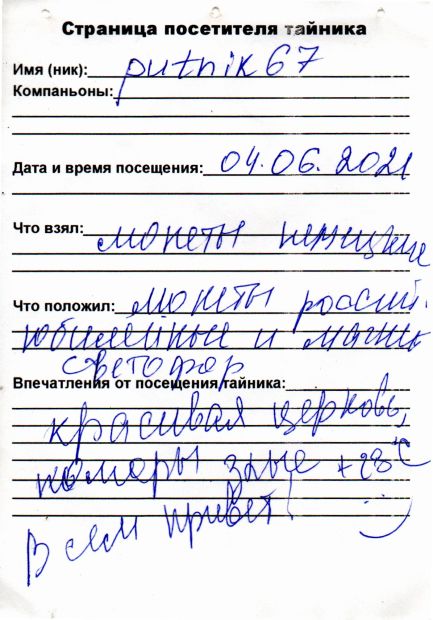 Страница посетителя тайника
Имя (ник): putnik67
Компаньоны:
Дата и время посещения: 04.06.2021
Что взял: монеты немецкие
Что положил: монеты россий.
юбилейные и магнит
светофор
Впечатления от посещения тайника:
красивая церковь,
комары злые +28°C
Всем привет! :)